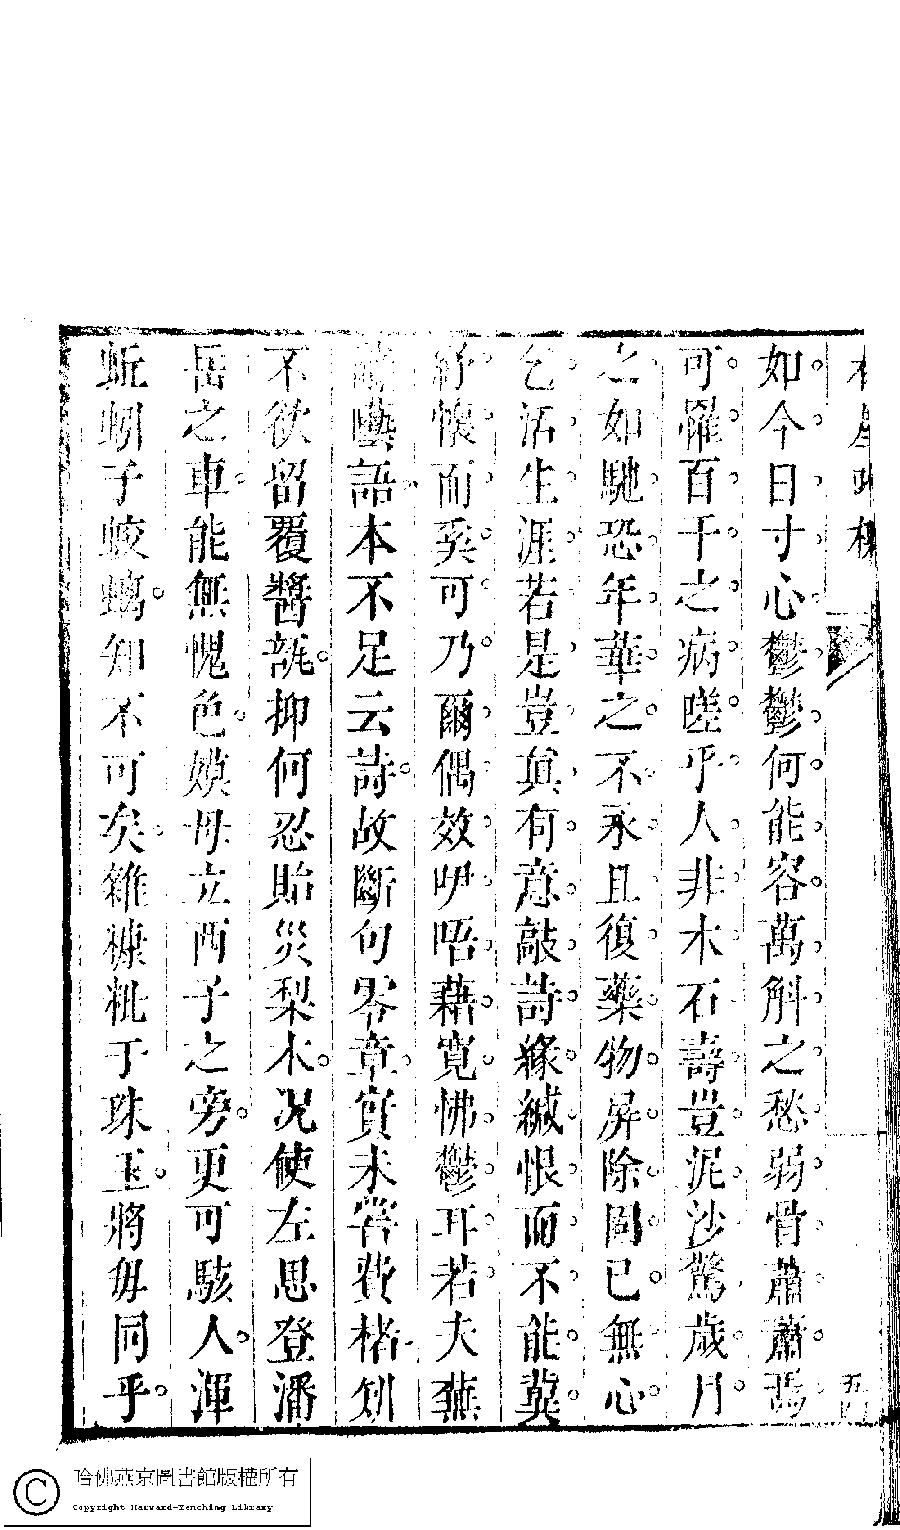 如今日寸心鬱鬱何能容萬斛之愁弱骨蕭蕭焉
可罹百千之病嗟乎人非木石壽豈泥沙驚歲月
之如馳恐年華之不永且復藥物屏除固已無心
乞活生涯若是豈眞有意敲詩緣緘恨而不能冀
紓懷而奚可乃爾偶效咿唔藉寛怫鬱耳若夫蕪
詞囈語本不足云詩故斷句零章實未嘗費楮刻
不欲留覆醬瓿抑何忍貽災梨木况使左思登潘
岳之車能無愧色嫫母立西子之旁更可駭人渾
蚯蚓于蛟螭知不可矣雜糠粃于珠玉將毋同乎
五
哈佛燕京圖書館版權所有
Copyright Harvard-Yenching Library